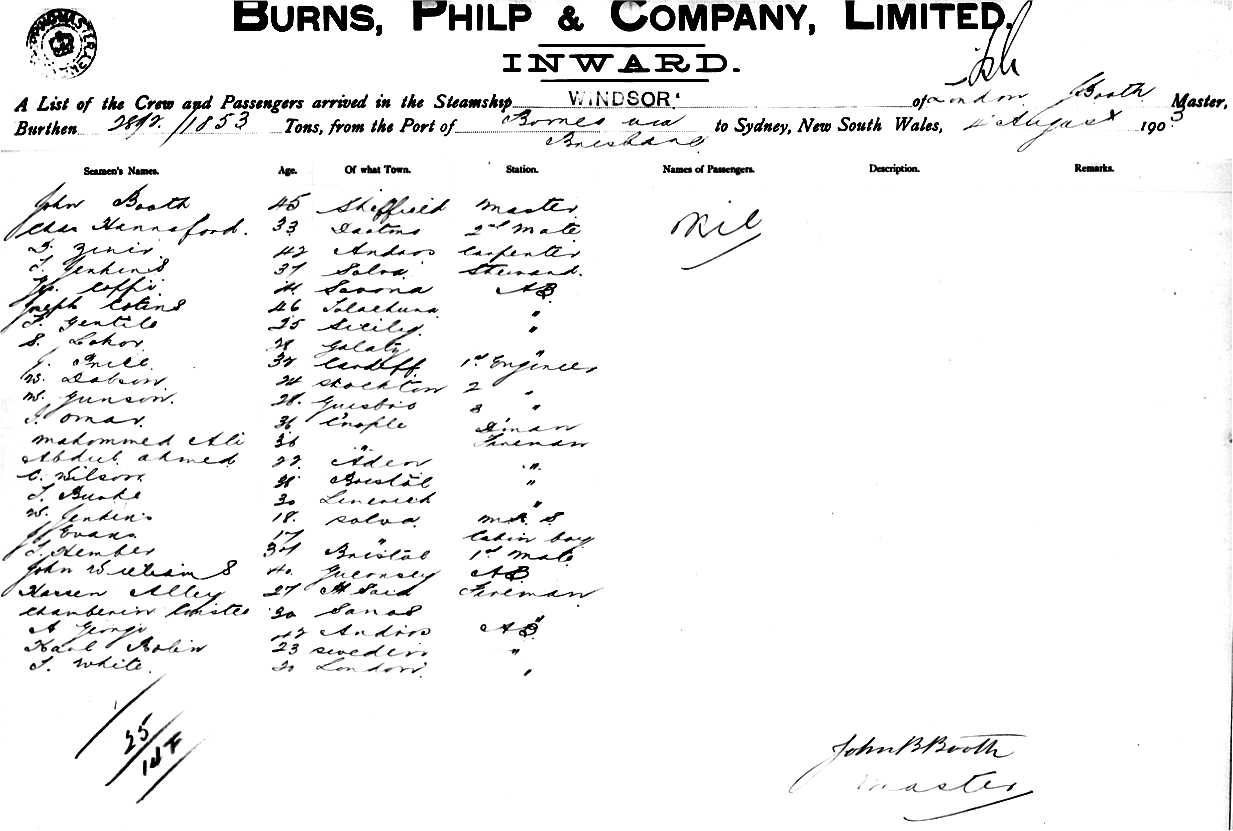 BURNS, PHILP & COMPANY, LIMITED.
INWARD.
A List of the Crew and Passengers arrived in the Steamship WINDSOR. of London Booth Master,
Burthen /1853 Tons, from the Port of Borneo via Brisbane to Sydney, New South Wales, 4 August 1903
Seamen's Names. Age. Of what Town. Station. Names of Passengers. Description. Remarks.
John Booth 45 Sheffield Master Nil
Chas Hannaford. 33 2nd Mate
42 Andros Carpenter
T. Jenkins 37 Solva Steward.
Coffi Savona AB
Joseph Cotins 46 "
T. Gentile 25 Sicily. "
S. Galatz "
J. 32 Cardiff 1st Engineer
W. Dobson 24 Stockton 2 "
W. Gunson. 28. Guisbro 3 "
S. Omar. 36 C'nople D'man
Mahommed Ali 36 " Fireman
Abdul Ahmed 22 Aden "
C. Wilson 38 Bristol "
T. Burke 30 Limerick "
W. Jenkins 18. Solva M.R. S
J. Evans 17 " Cabin boy
T. Hember 34 Bristol 1st Mate
John Williams 40 Guernsey AB
Hassen Alley 27 Pt Said Fireman
30 "
A George 42 Andros AB
Karl Bolin 23 Sweden "
T. White. Londori "
25
John B Booth
Master